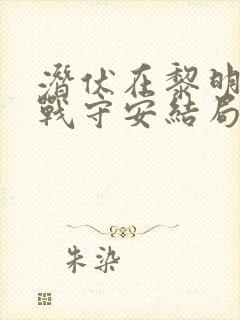 潛伏在黎明
戰守安結局
朱染